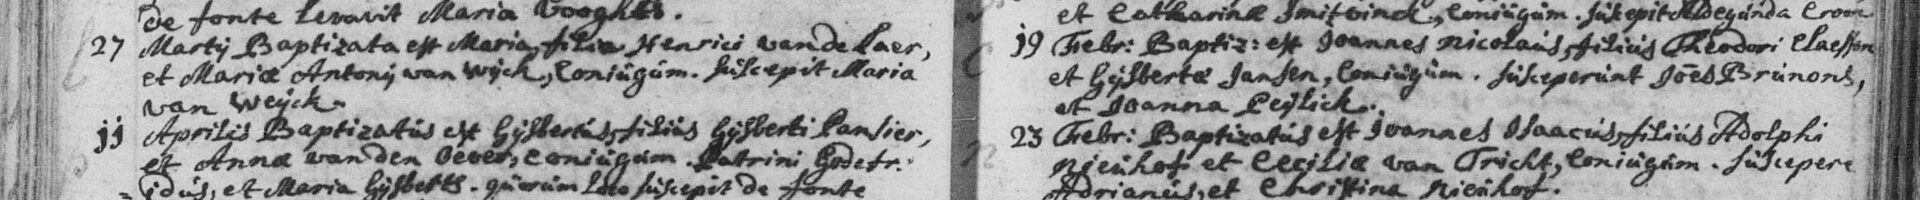 de fonte levavit Maria Vooghts.
27 Martij Baptizata est Maria, filia Henrici van de Laer,
et Mariæ Antonij van Wijck, Coniúgúm. súscepit Maria
van Weÿck.
11 Aprilis Baptizatús est Gijsbertús, filiús Gijsberti Pansier,
et Annæ van den Oever, Coniúgúm. Patrini Godefr:
idús, et Maria Gijsberts. qúorúm loco súscepit de fonte
et Catharinæ Coniúgúm. súscepit Aldegúnda Croon
19 Febr: Baptiz: est Joannes Nicolaús, filiús Theodori Claessen
et Gijsbertæ Jansen, Coniúgúm. súscepérúnt Joẽs Brúnons,
et Joanna Peijlick.
23 Febr: Baptizatús est Joannes Isaacús, filiús Adolphi
Nieúhof et Cæciliæ van Tricht, Coniúgúm. súscepere
Adrianús, et Christina Nieúhof.